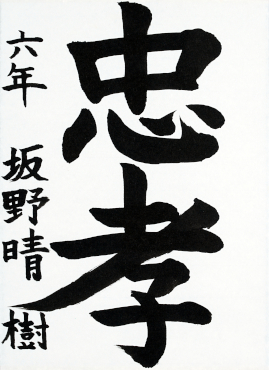 忠孝
六年 坂野晴樹